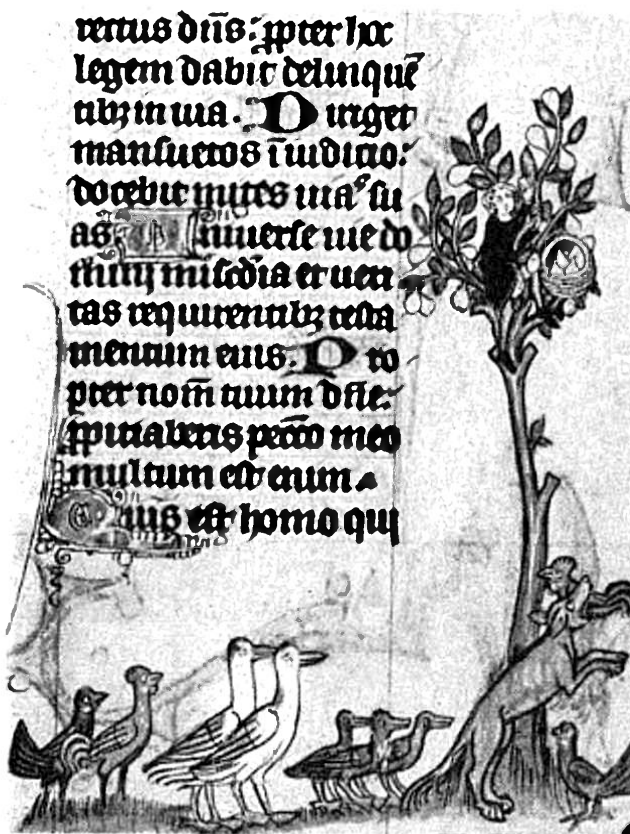 rectus dn̄s: ꝓpter hoc
legem dabit delinquē
tibȝ in uia. Diriget
mansuetos ī iudicio:
docebit mites uias su
as Uniuerse uie do
mini mis̄cdia et ueri
tas requirentibȝ testa
mentum eius. Pro
pter nom̄ tuum dn̄e:
ꝓpitiaberis pecc̄o meo
multum est enim
Quis est homo qui